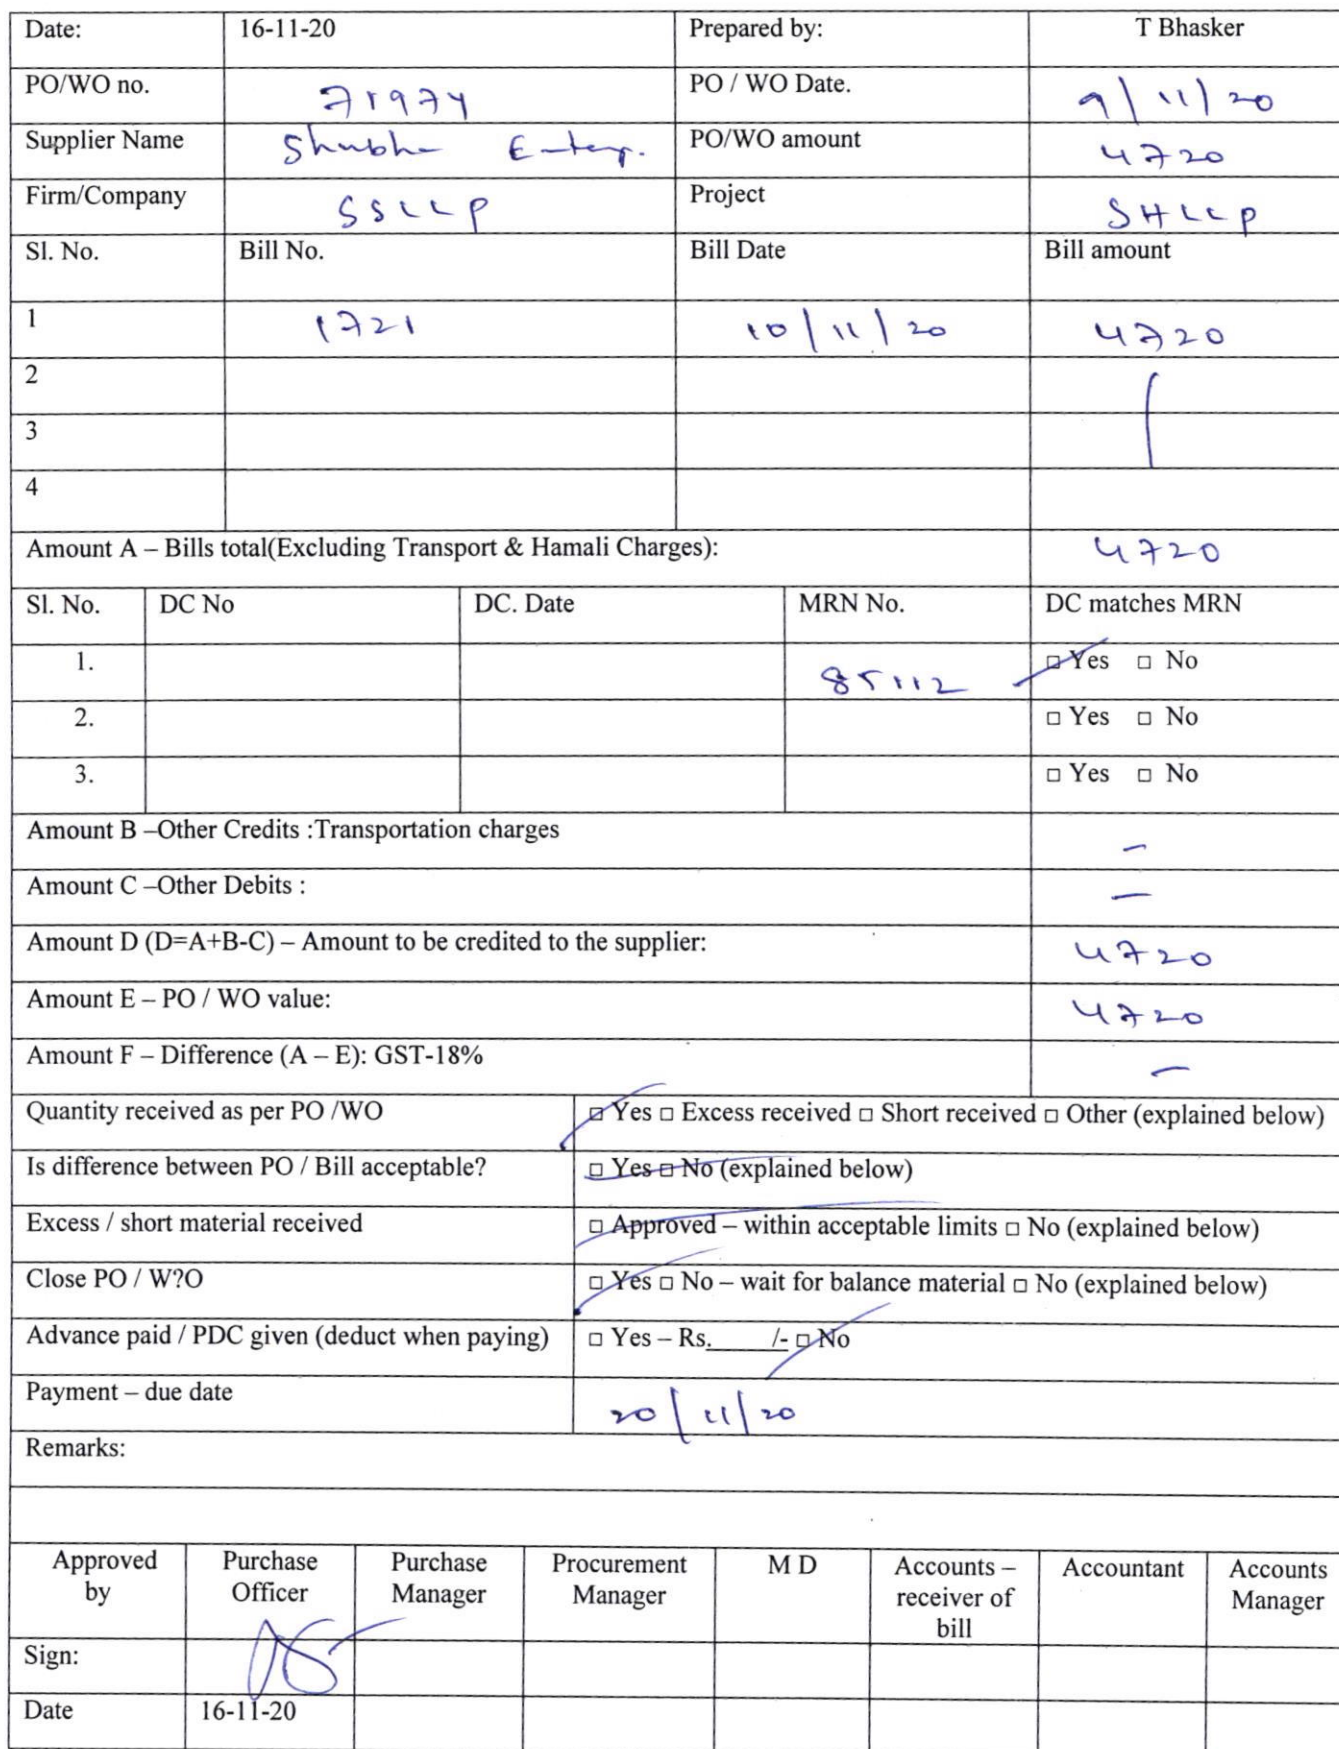 Date: 16-11-20 Prepared by: T Bhasker
PO/WO no. 71974 PO / WO Date. 9/11/20
Supplier Name Shubha Enterp. PO/WO amount 4720
Firm/Company SSLLP Project SHLLP
Sl. No. Bill No. Bill Date Bill amount
1 1721 10/11/20 4720
2
3
4
Amount A – Bills total(Excluding Transport & Hamali Charges): 4720
Sl. No. DC No DC. Date MRN No. DC matches MRN
1. 85112 □ Yes □ No
2. □ Yes □ No
3. □ Yes □ No
Amount B –Other Credits :Transportation charges –
Amount C –Other Debits : –
Amount D (D=A+B-C) – Amount to be credited to the supplier: 4720
Amount E – PO / WO value: 4720
Amount F – Difference (A – E): GST-18% –
Quantity received as per PO /WO □ Yes □ Excess received □ Short received □ Other (explained below)
Is difference between PO / Bill acceptable? □ Yes □ No (explained below)
Excess / short material received □ Approved – within acceptable limits □ No (explained below)
Close PO / W?O □ Yes □ No – wait for balance material □ No (explained below)
Advance paid / PDC given (deduct when paying) □ Yes – Rs.______/- □ No
Payment – due date 20/11/20
Remarks:
Approved Purchase Purchase Procurement M D Accounts – Accountant Accounts
by Officer Manager Manager receiver of Manager
bill
Sign:
Date 16-11-20